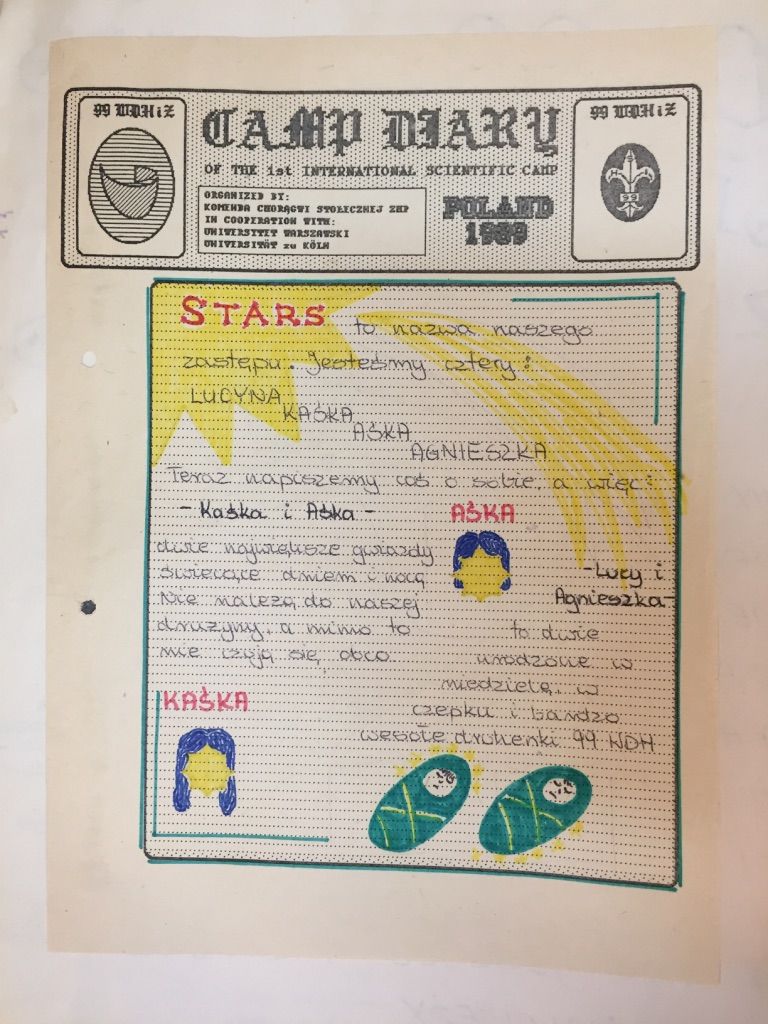 99 WDHiZ
CAMP DIARY
99 WDHiZ
OF THE 1st INTERNATIONAL SCIENTIFIC CAMP
ORGANIZED BY:
KOMENDA CHORĄGWI STOŁECZNEJ ZHP
IN COOPERATION WITH:
UNIWERSYTET WARSZAWSKI
UNIVERSITÄT zu KÖLN
POLAND
1989
99
STARS to nazwa naszego
zastępu. Jesteśmy cztery:
LUCYNA
KAŚKA
AŚKA
AGNIESZKA
Teraz napiszemy coś o sobie, a więc:
- Kaśka i Aśka -
dwie największe gwiazdy
świecące dniem i nocą
Nie należą do naszej
drużyny, a mimo to
nie czują się obco.
AŚKA
- Lucy i
Agnieszka -
to dwie
urodzone w
niedzielę, w
czepku i bardzo
wesołe druhenki 99 WDH
KAŚKA